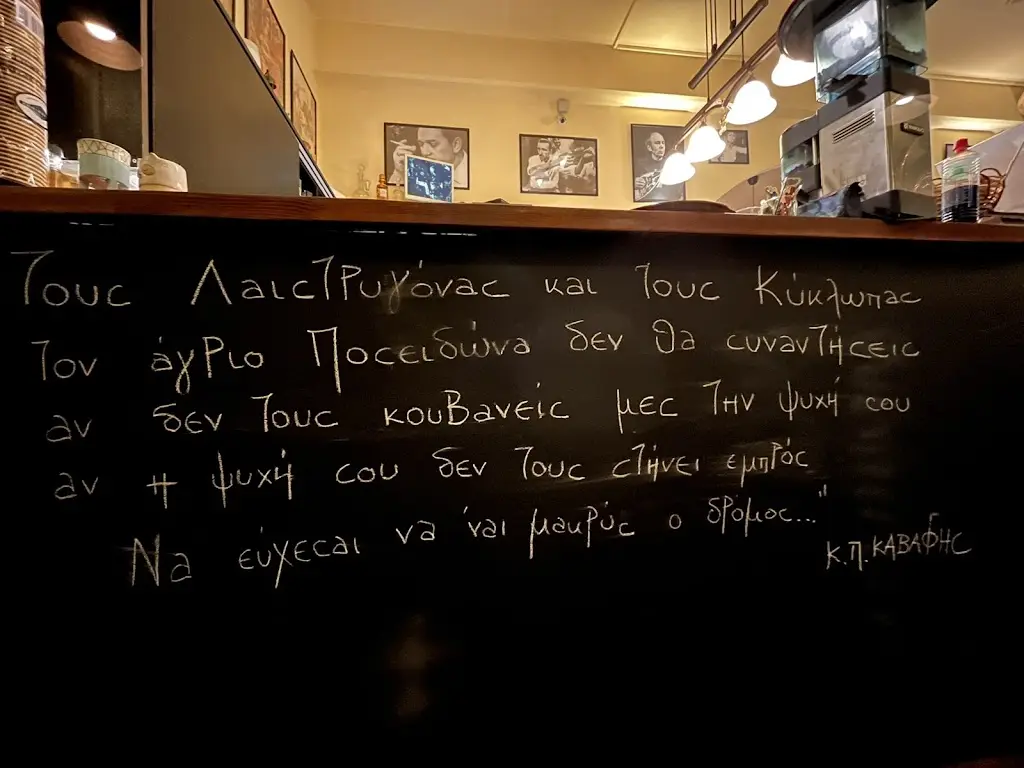 Τους Λαιστρυγόνας και τους Κύκλωπας
τον άγριο Ποσειδώνα δεν θα συναντήσεις
αν δεν τους κουβανείς μες την ψυχή σου
αν η ψυχή σου δεν τους στήνει εμπρός
Να εύχεσαι να 'ναι μακρύς ο δρόμος..."
Κ.Π. ΚΑΒΑΦΗΣ